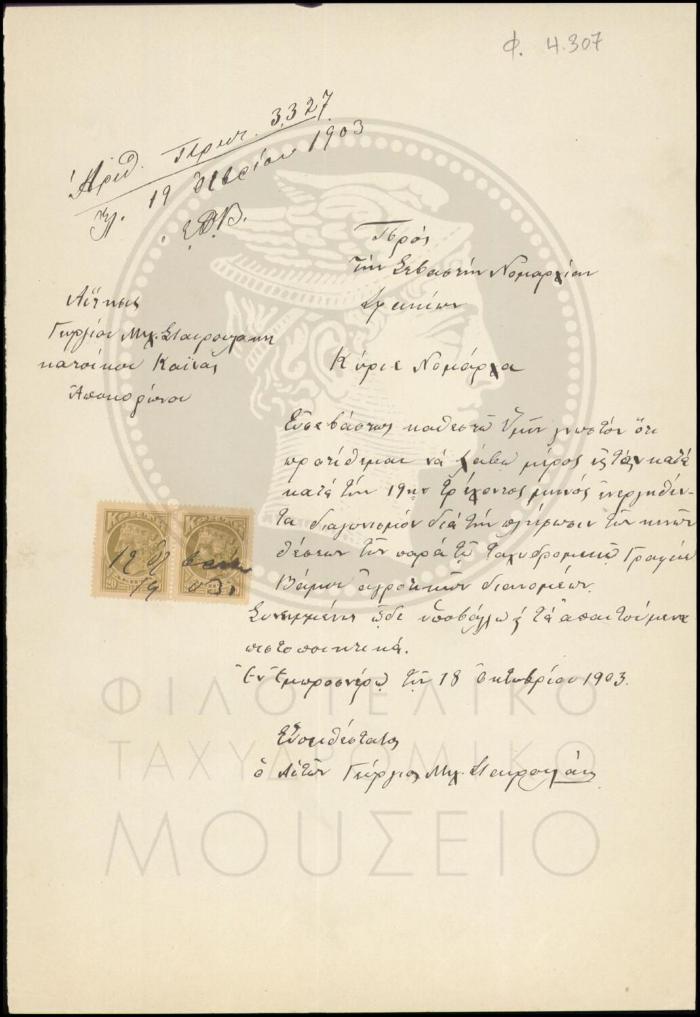 Φ. 4.307
Ἀριθ. Πρωτ. 3327
19 8βρίου 1903
Πρὸς
τὴν Σεβαστὴν Νομαρχίαν
Σφακίων
Αἴτησις
Γεωργίου Μιχ. Σταυρουλάκη
κατοίκου Κάϊνας
Ἀποκορώνου
Κύριε Νομάρχα
Εὐσεβάστως καθιστῶ Ὑμῖν γνωστὸν ὅτι
προτίθεμαι νὰ λάβω μέρος εἰς τὸν κατὰ
κατὰ τὴν 19ην τρέχοντος μηνὸς ἐνεργηθέν-
τα διαγωνισμὸν διὰ τὴν πλήρωσιν τῶν κενῶν
θέσεων τῶν παρὰ τῷ ταχυδρομικῷ Γραφείῳ
Βάμου ἀγροτικῶν διανομέων.
Συνημμένως ὧδε ὑποβάλλω τὰ ἀπαιτούμενα
πιστοποιητικά.
Ἐν Ἐμπροσνέρῳ τῇ 18 Ὀκτωβρίου 1903.
Εὐπειθέστατος
ὁ Αἰτῶν Γεώργιος Μιχ. Σταυρουλάκης
ΚΡΗΤΗ ΚΡΗΤΗ
19 03
ΦΙΛΟΤΕΛΙΚΟ
ΤΑΧΥΔΡΟΜΙΚΟ
ΜΟΥΣΕΙΟ